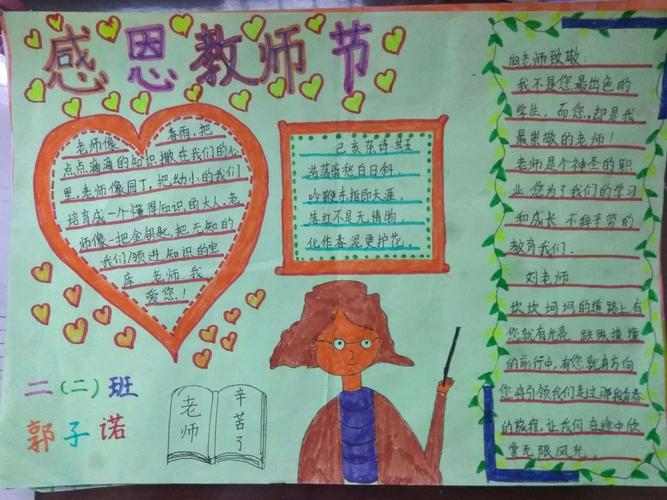 感恩教师节
老师像春雨,把
点点滴滴的知识撒在我们的心
里.老师像园丁,把幼小的我们
培育成一个懂得知识,的大人.老
师像一把金钥匙,把无知的
我们领进知识的宝
库 老师 我
爱您!
己亥杂诗 其五
浩荡离愁白日斜,
吟鞭东指即天涯.
落红不是无情物,
化作春泥更护花.
向老师致敬:
我不是您最出色的
学生,而您,却是我
最崇敬的老师!
老师是个神圣的职
业,您为了我们的学习
和成长,不辞辛劳的
教育我们.
刘老师
坎坎坷坷的道路上有
您就有光亮 跌跌撞撞
的前行中,有您就有方向
您将引领我们走过那段青春
的旅程,让我们在途中欣
赏无限风光.
二(二)班
郭子诺
老师
辛苦了